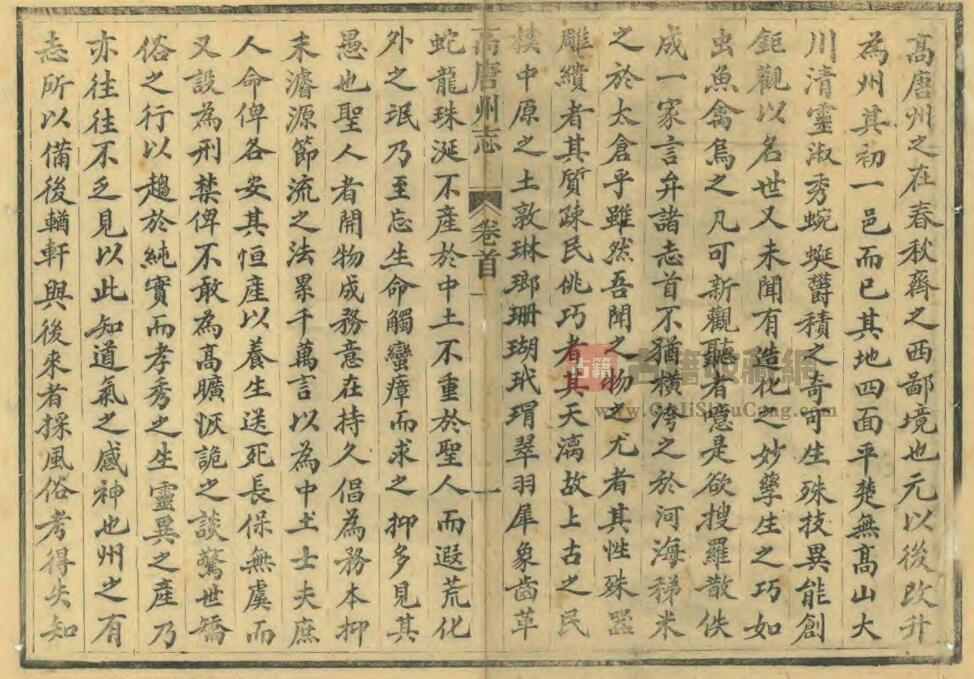 高唐州之在春秋齊之西鄙境也元以後改升
為州其初一邑而已其地四面平楚無高山大
川清靈淑秀蜿蜒欝積之奇奇生殊技異能創
鉅觀以名世又未聞有造化之妙孳生之巧如
出魚禽烏之凡可新觀聽者意是欲搜羅散佚
成一家言弁諸志首不猶橫灣之於河海稊米
之於太倉乎雖然吾聞之物之尤者其性殊器
雕繢者其質疎民佻巧者其天漓故上古之民
樸中原之土敦琳瑯珊瑚玳瑁翠羽犀象齒革
高唐州志 卷首 一
蛇龍珠涎不產於中土不重於聖人而遐荒化
外之珉乃至忘生命觸蠻瘴而求之抑多見其
愚也聖人者開物成務意在持久倡為務本抑
末濬源節流之法累千萬言以為中土士夫庶
人命俾各安其恒產以養生送死長保無虞而
又設為刑禁俾不敢為高曠恢詭之談驚世矯
俗之行以趨於純實而孝秀之生靈異之產乃
亦往往不乏見以此知道氣之感神也州之有
志所以備後輶軒與後來者採風俗考得失知
古籍 古籍收藏網
www.GuJiShouCang.com